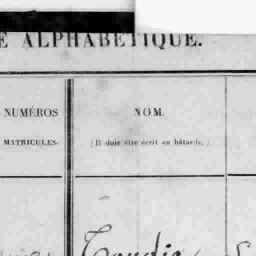 E ALPHABÉTIQUE.
NUMÉROS
MATRICULES.
NOM.
(Il doit être écrit en bâtarde.)